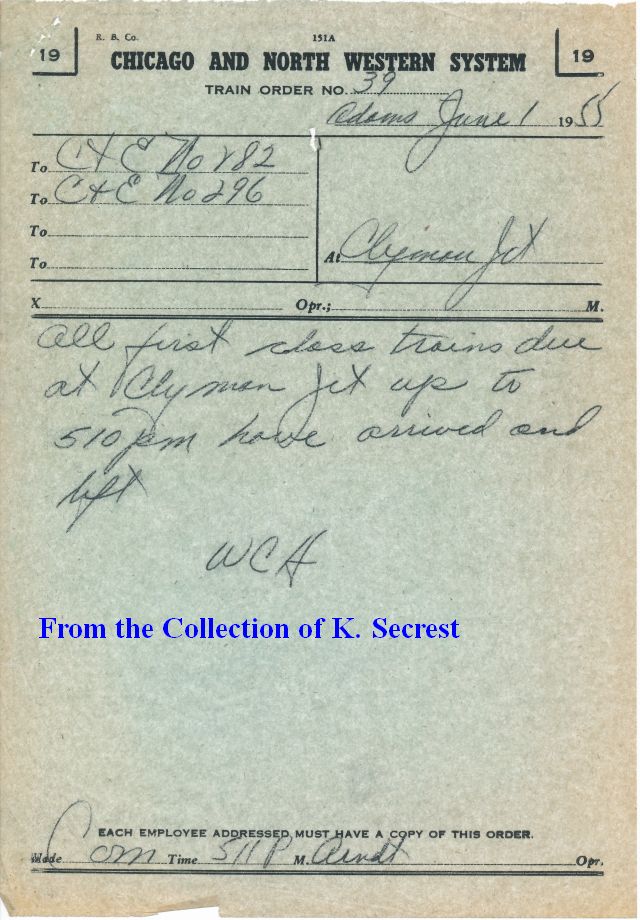 R. B. Co. 151A
19 CHICAGO AND NORTH WESTERN SYSTEM 19
TRAIN ORDER NO. 39
Adams June 1 1955
To C & E No 282
To C & E No 296
To
To
At Clyman Jct
X Opr.; M.
All first class trains due
at Clyman Jct up to
510 pm have arrived and
left
WCH
From the Collection of K. Secrest
EACH EMPLOYEE ADDRESSED MUST HAVE A COPY OF THIS ORDER.
Made Com Time 511 P M. Arndt Opr.